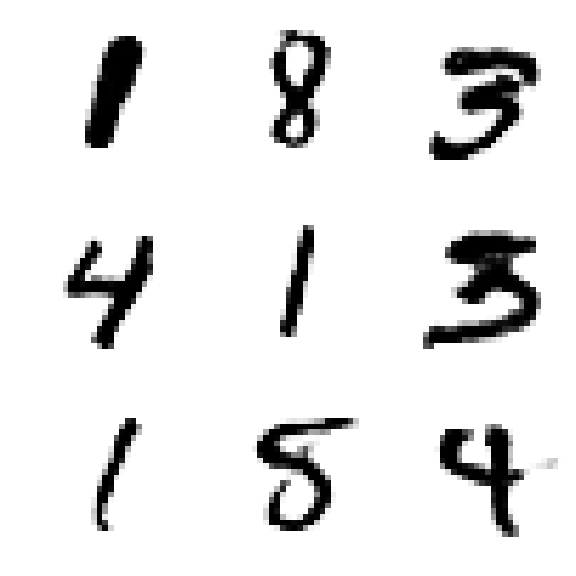 1 8 3
4 1 3
1 8 4